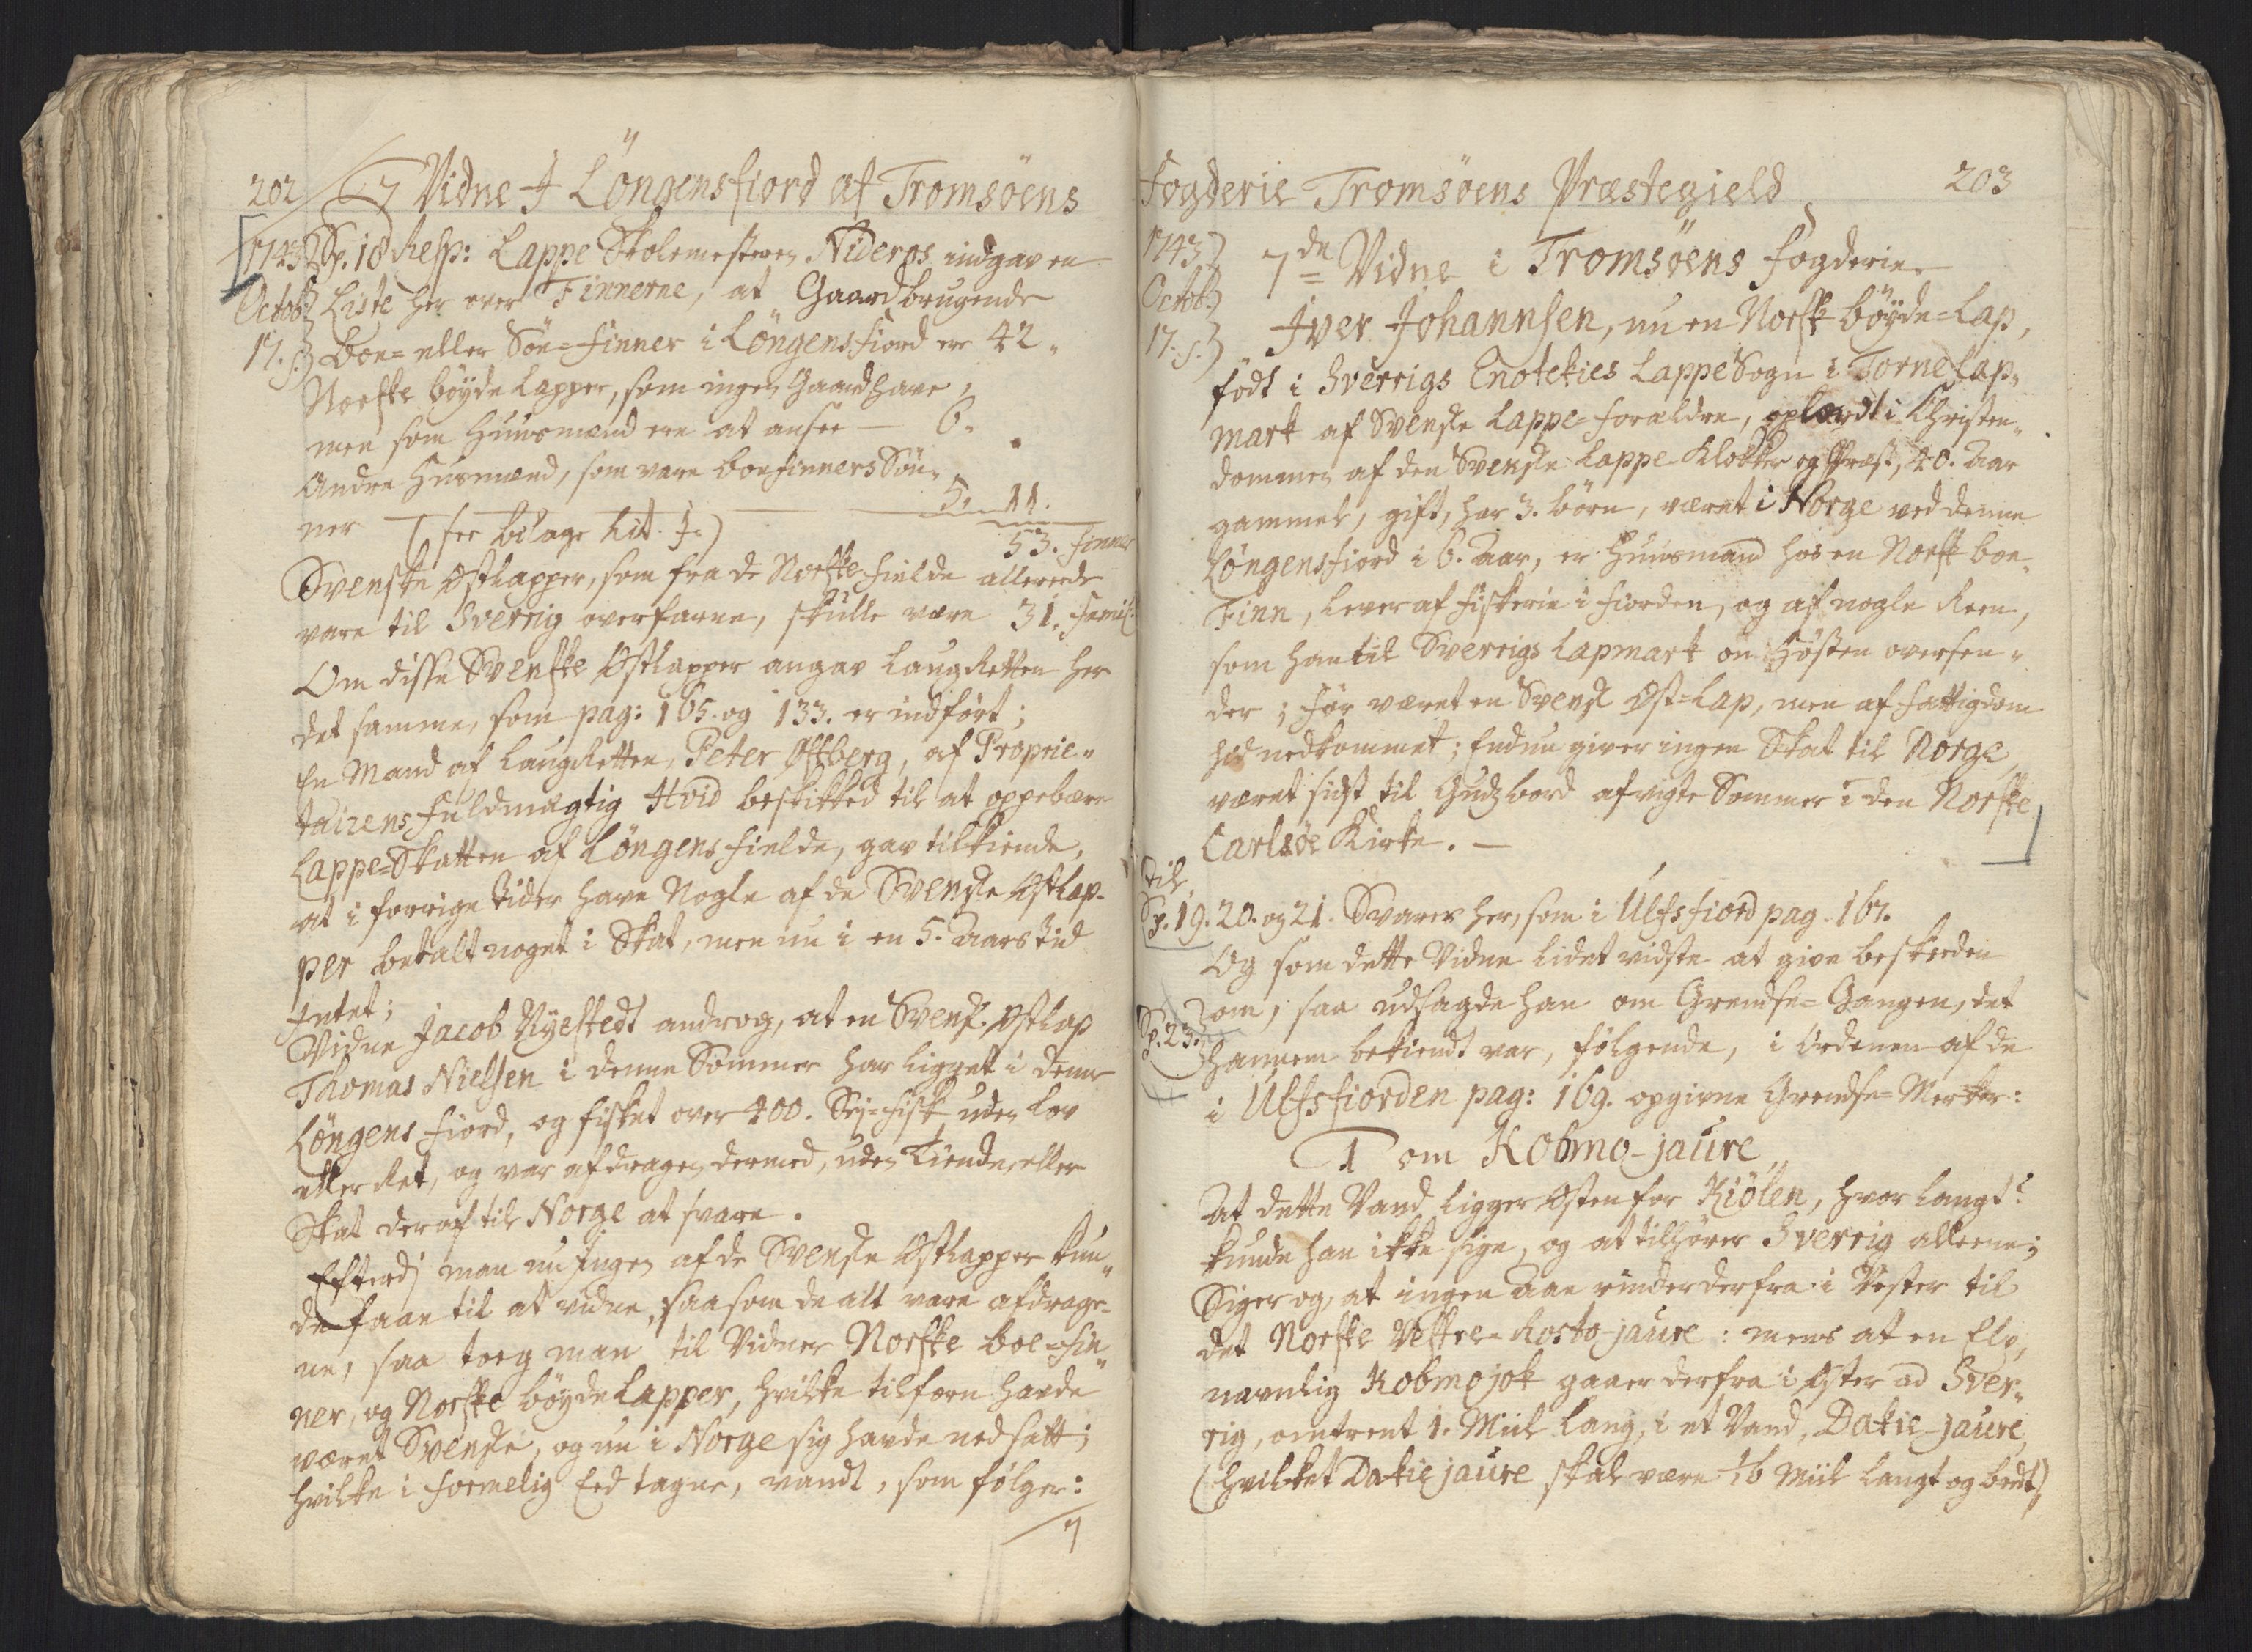 202 7 Vidne J Löngensfiord af Tromsöens
1743 Sp. 18 Resp: Lappe Skolemesteren Niderøs indgav en
Octob: Liste her over Finnerne, at Gaardbrugende
17. s: boe= eller Söe=finner i Löngensfiord ere 42„
Norske böyde Lapper, som ingen Gaard have,
men som Huusmænd ere at ansee — 6.
Andre Husmænd, som vare boefinners Sön„
ner (see bilage Lit. J.) — 5. 11.
53. finner
Svenske Ostlapper, som fra de Norske fielde allerede
vare til Sverrig overfarne, skulle være 31. famil:
Om disse Svenske Ostlapper angav LaugRetten her
det samme, som pag: 165. og 133. er indfört;
En Mand af LaugRetten, Peter Oftberg, af Proprie„
tairens fuldmægtig Hvid beskikked til at oppebære
Lappe=Skatten af Löngens fielde, gav tilkiende,
at i forrige tider have Nogle af de Svenske Ostlap„
per betalt noget i Skat, men nu i en 5. Aars tid
Intet;
Vidne Jacob Nyestedt androg, at en Svensk Ostlap
Thomas Nielsen i denne Sommer har ligget i denne
Löngens fiord, og fisket over 400. Sej=fisk uden lov
eller Ret, og var afdragen dermed, uden Tiende eller
Skat deraf til Norge at svare.
Efterdj man nu Ingen af de Svenske Ostlapper kun„
de faae til at vidne, saasom de alt vare afdrage„
ne, saa toeg man til Vidner Norske boe=fin„
ner, og Norske böyde Lapper, hvilke tilforn havde
været Svenske, og nu i Norge sig havde nedsatt;
hvilke i formelig Eed tagne, vandt, som fölger:
7
Fogderie Tromsöens Præstegield 203
1743 7de Vidne i Tromsöens fogderie
Octob:
17. s: Iver Johannsen, nu en Norsk böyde=Lap,
födt i Sverrigs Enotekies LappeSogn i Torne Lap„
mark af Svenske Lappe=forældre, oplærdt i Christen„
dommen af den Svenske Lappe Klokker og Præst, 40. Aar
gammel, gift, har 3. börn, været i Norge ved denne
Löngensfiord i 6. Aar, er Huusmand hos en Norsk boe„
Finn, lever af fiskerie i fiorden, og af nogle Reen,
som han til Sverrigs Lapmark om Hösten oversen„
der; för været en Svensk Ost=Lap, men af fattigdom
hid nedkommet; Endnu giver ingen Skat til Norge,
været sidst til Gudz bord afvigte Sommer i den Norske
Carlsöe Kirke. —
til
Sp. 19. 20. og 21. Svares her, som i Ulfsfiord pag. 167.
Og som dette Vidne lidet vidste at give beskeeden
om, saa udsagde han om Grendse=Gangen, det
Sp. 23. hannem bekiendt var, fölgende, i Ordenen af de
i Ulfsfiorden pag: 169. opgivne Grendse=Merker:
1 om Kobmo-jaure
At dette Vand ligger Osten for Kiölen, hvor langt?
kunde han ikke sige, og at tilhörer Sverrig alleene;
Siger og, at ingen Aae rinder derfra i Vester til
det Norske Vestre=Rosto-jaure: mens at en Elv,
navnlig Kobmojok gaaer derfra i Oster ad Sver„
rig, omtrent 1. Miil lang, i et Vand, Datie-jaure,
(hvilket Datiejaure skal være 1/6 Miil langt og bredt),